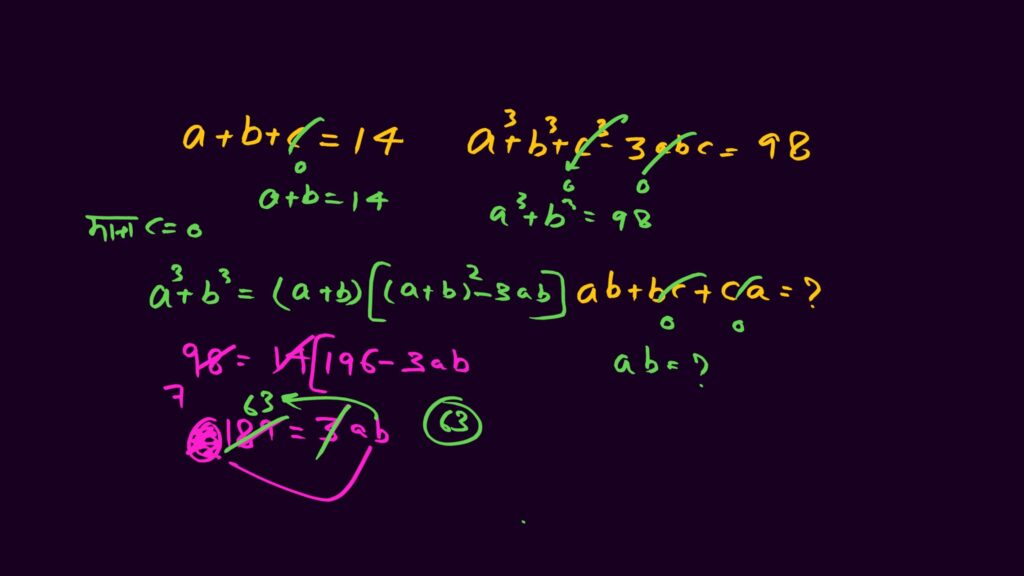 a+b+c=14 a³+b³+c³-3abc=98
0 0 0
a+b=14 a³+b³=98
माना c=0
a³+b³=(a+b)[(a+b)²-3ab] ab+bc+ca=?
0 0
98=14[196-3ab ab=?
7
63
189=3ab 63